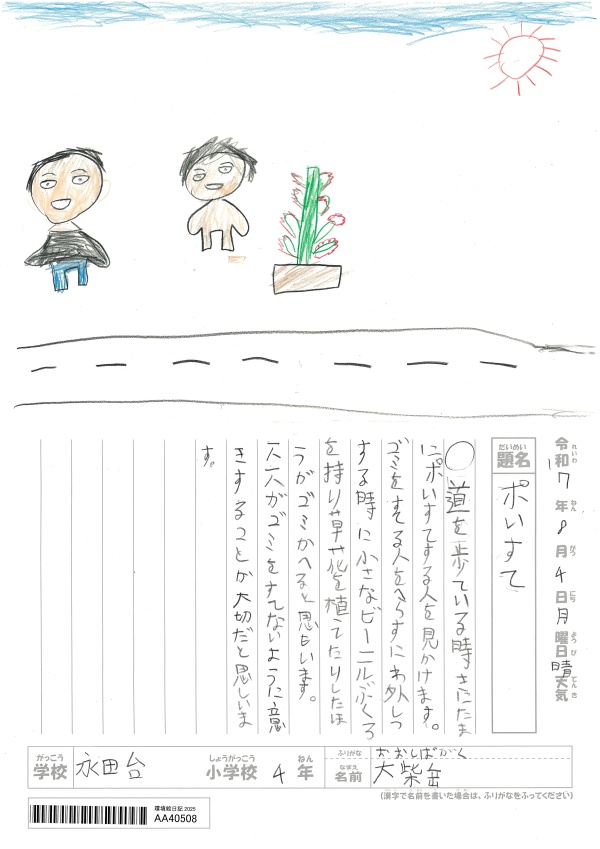 令和7年8月4日月曜日晴天気
れいわ ねん がつ にち ようび てんき
だいめい
題名
ポいすて
○道を歩ている時さにたま
にポいすてする人を見かけます。
ゴミをすてる人をへらすにわ外しつ
する時に小さなビーニルぶくろ
を持りや草や花を植てたりしたほ
うがゴミがへると思もいます。
人人がゴミをすてないように意
きすることが大切だと思しいま
す。
がっこう
学校
永田台
しょうがっこう
小学校
4
ねん
年
ふりがな
おおしばがく
なまえ
名前
大柴
(漢字で名前を書いた場合は、ふりがなをふってください)
環境絵日記 2025
AA40508